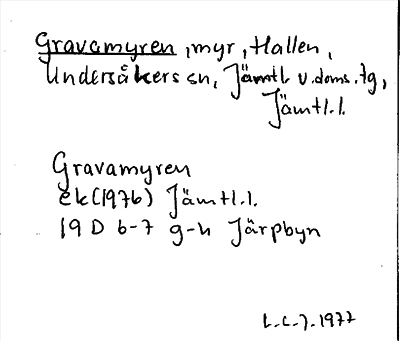 Gravamyren, myr, Hallen,
Undersåkers sn, Jämtl. v. doms. tg,
Jämtl.l.
Gravamyren
ek (1976) Jämtl.l.
19 D 6-7 g-h Järpbyn
L.C.J. 1977